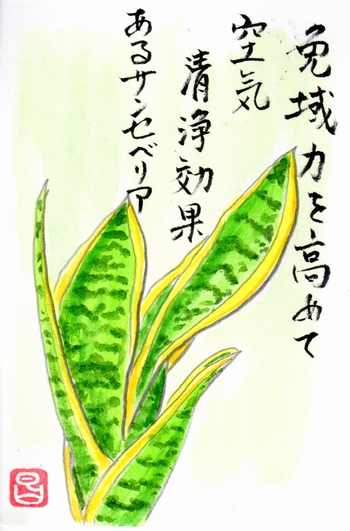 免域力を高めて
空気
清浄効果
あるサンセベリア